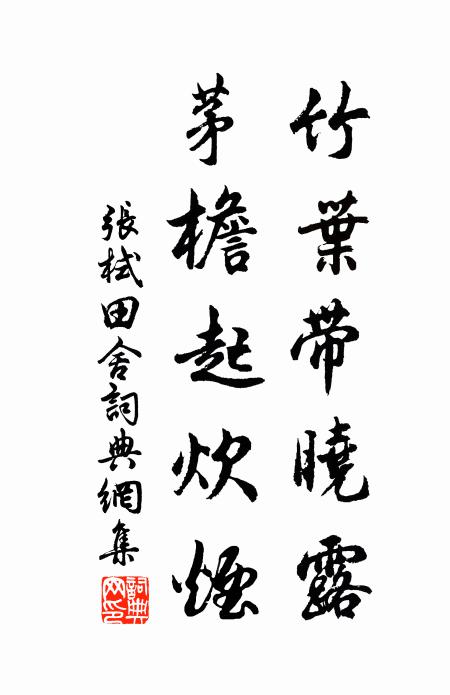 竹葉帶曉露
茅檐起炊煙
張栻田舍詞典網集
詞典網印